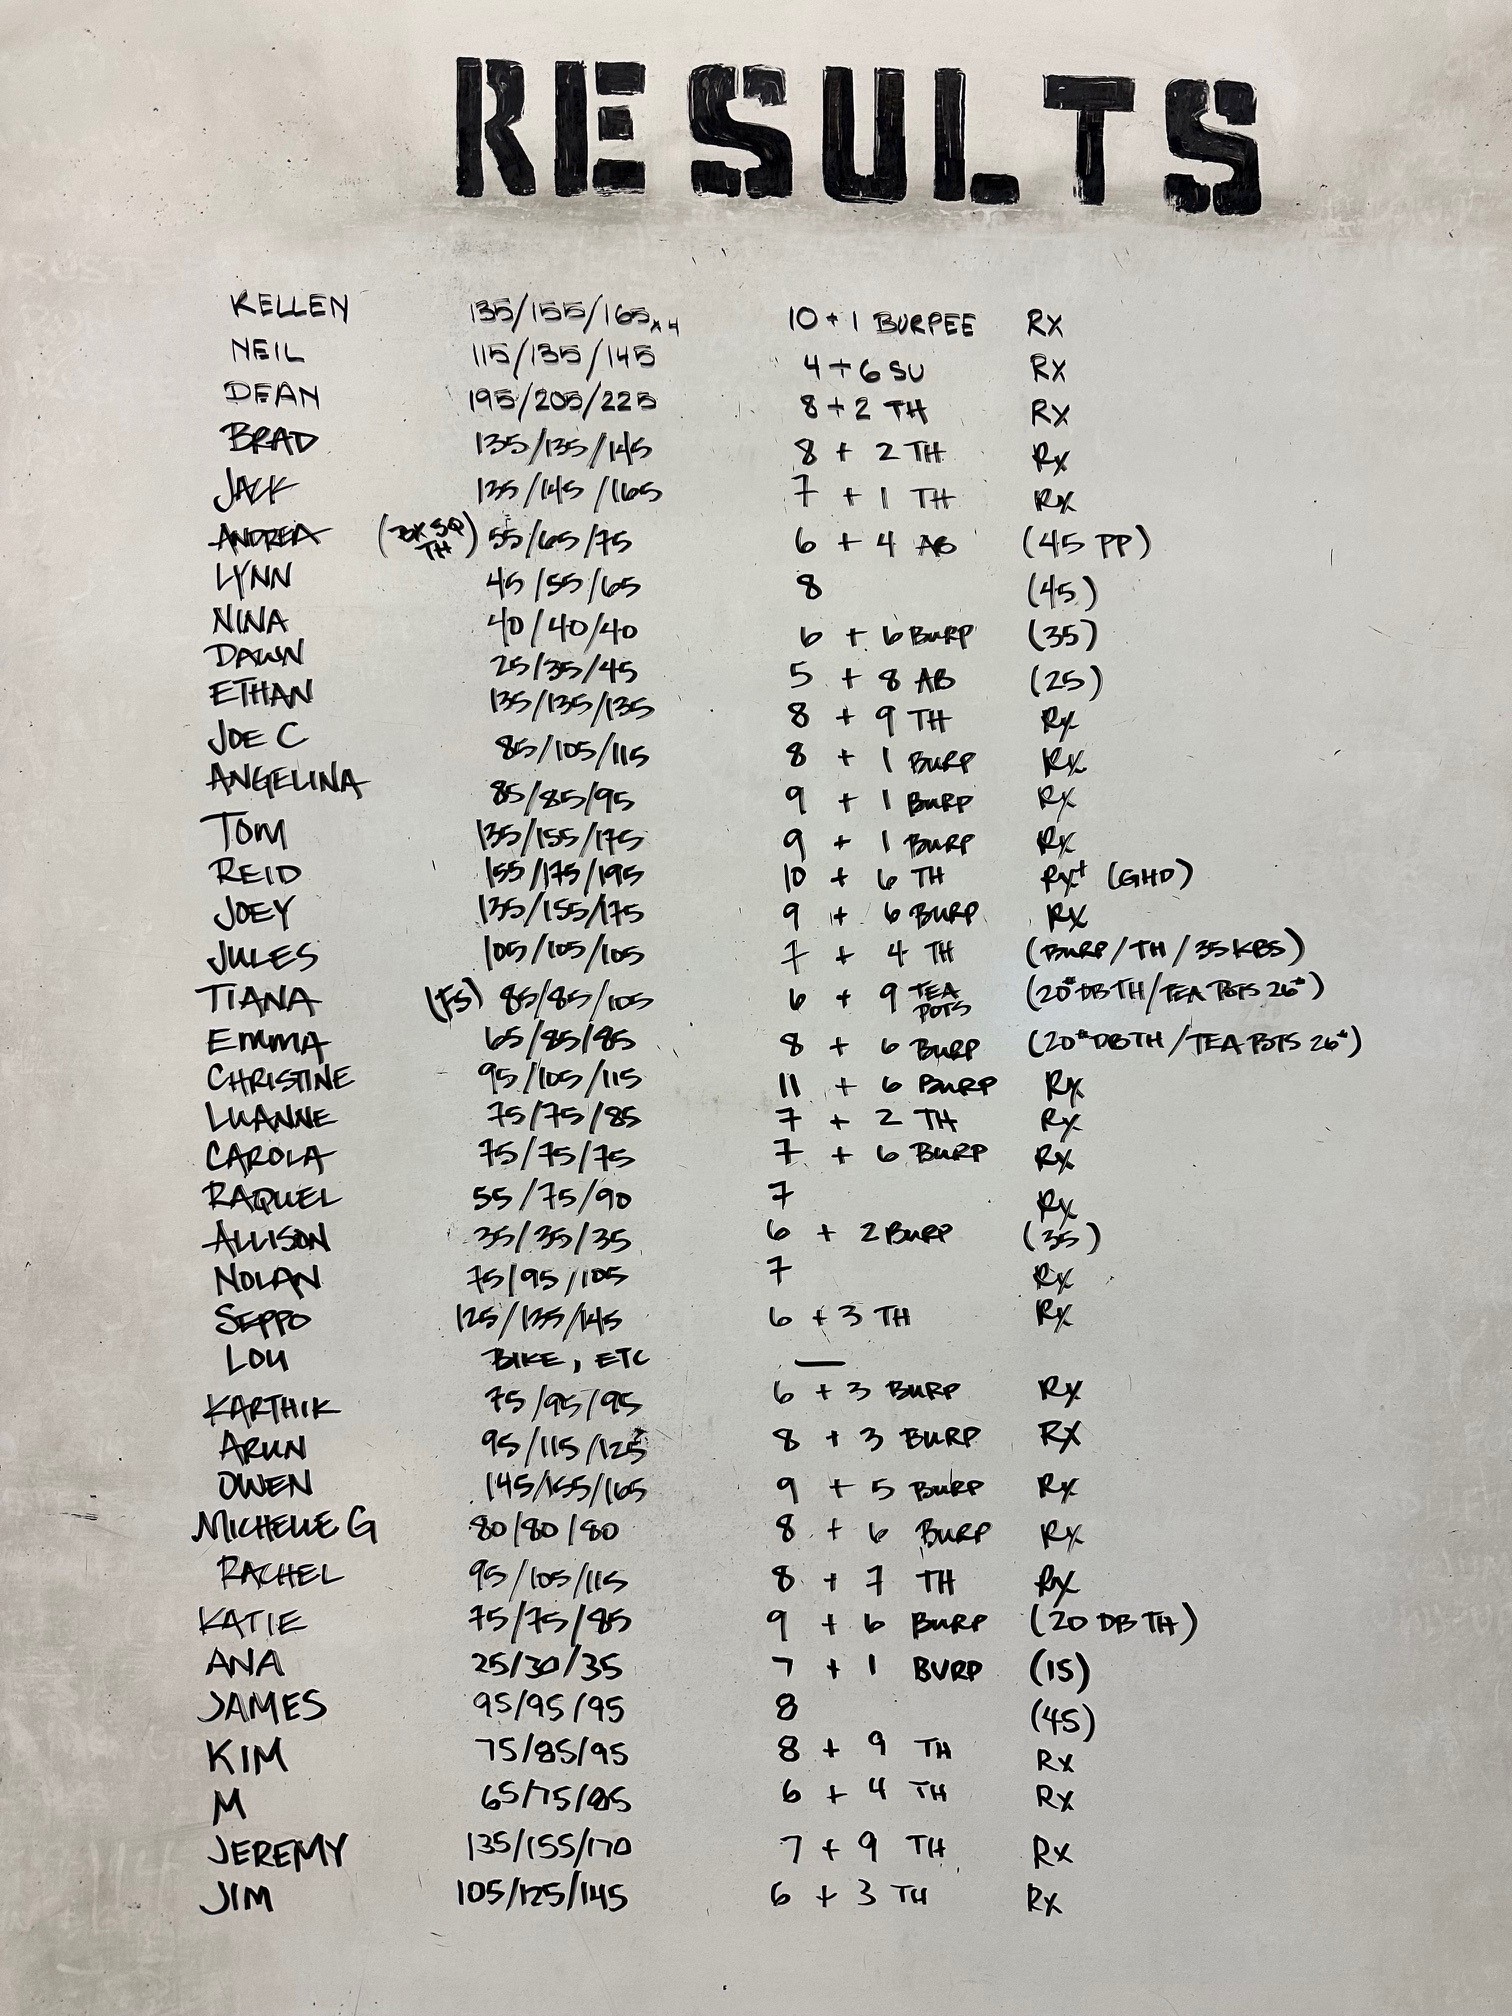 RESULTS
KELLEN 135/155/165x4 10+1 BURPEE RX
NEIL 115/135/145 4+6 SU RX
DEAN 195/205/225 8+2 TH RX
BRAD 135/135/145 8 + 2 TH Rx
JACK 135/145/165 7 + 1 TH Rx
ANDREA (BX SQ TH) 55/65/75 6 + 4 AB (45 PP)
LYNN 45/55/65 8 (45)
NINA 40/40/40 6 + 6 BURP (35)
DAWN 25/35/45 5 + 8 AB (25)
ETHAN 135/135/135 8 + 9 TH Rx
JOE C 85/105/115 8 + 1 BURP Rx
ANGELINA 85/85/95 9 + 1 BURP Rx
TOM 135/155/175 9 + 1 BURP Rx
REID 155/175/195 10 + 6 TH Rx+ (GHD)
JOEY 135/155/175 9 + 6 BURP RX
JULES 105/105/105 7 + 4 TH (BURP/TH/35 KBS)
TIANA (FS) 85/85/105 6 + 9 TEA POTS (20# DB TH/TEA POTS 26#)
EMMA 65/85/85 8 + 6 BURP (20# DB TH/TEA POTS 26#)
CHRISTINE 95/105/115 11 + 6 BURP Rx
LUANNE 75/75/85 7 + 2 TH Rx
CAROLA 75/75/75 7 + 6 BURP Rx
RAQUEL 55/75/90 7 Rx
ALLISON 35/35/35 6 + 2 BURP (35)
NOLAN 75/95/105 7 Rx
SEPPO 125/135/145 6 + 3 TH Rx
LOU BIKE, ETC —
KARTHIK 75/95/95 6 + 3 BURP Rx
ARUN 95/115/125 8 + 3 BURP RX
OWEN 145/155/165 9 + 5 BURP Rx
MICHELLE G 80/80/80 8 + 6 BURP Rx
RACHEL 95/105/115 8 + 7 TH Rx
KATIE 75/75/85 9 + 6 BURP (20 DB TH)
ANA 25/30/35 7 + 1 BURP (15)
JAMES 95/95/95 8 (45)
KIM 75/85/95 8 + 9 TH Rx
M 65/75/85 6 + 4 TH Rx
JEREMY 135/155/170 7 + 9 TH Rx
JIM 105/125/145 6 + 3 TH Rx